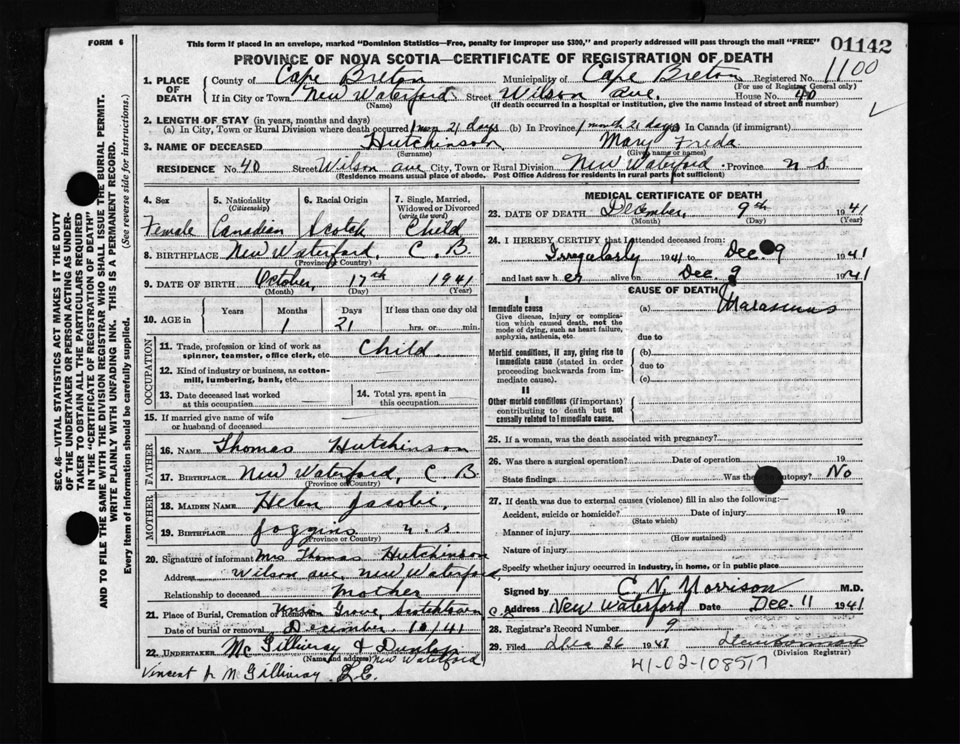 FORM 6
This form if placed in an envelope, marked "Dominion Statistics—Free, penalty for improper use $300," and properly addressed will pass through the mail "FREE"
01142
PROVINCE OF NOVA SCOTIA—CERTIFICATE OF REGISTRATION OF DEATH
1. PLACE OF DEATH County of Cape Breton Municipality of Cape Breton Registered No. 1100
(For use of Registrar General only)
If in City or Town New Waterford Street Wilson Ave. House No. 40
(Name) (If death occurred in a hospital or institution, give the name instead of street and number)
2. LENGTH OF STAY (in years, months and days)
(a) In City, Town or Rural Division where death occurred 1 mon 21 days (b) In Province 1 month 21 days In Canada (if immigrant)
3. NAME OF DECEASED Hutchinson Mary Freda
(Surname) (Given name or names)
RESIDENCE No. 40 Street Wilson ave City, Town or Rural Division New Waterford Province N S
(Residence means usual place of abode. Post Office Address for residents in rural parts not sufficient)
4. Sex 5. Nationality (Citizenship) 6. Racial Origin 7. Single, Married, Widowed or Divorced (write the word)
Female Canadian Scotch Child
8. BIRTHPLACE New Waterford, C. B
(Province or Country)
9. DATE OF BIRTH October, 17th 1941
(Month) (Day) (Year)
10. AGE in Years Months Days If less than one day old
1 21 hrs. or min.
OCCUPATION
11. Trade, profession or kind of work as spinner, teamster, office clerk, etc. Child
12. Kind of industry or business, as cotton-mill, lumbering, bank, etc.
13. Date deceased last worked at this occupation 14. Total yrs. spent in this occupation
15. If married give name of wife or husband of deceased
FATHER
16. NAME Thomas Hutchinson
17. BIRTHPLACE New Waterford, C B.
(Province or Country)
MOTHER
18. MAIDEN NAME Helen Jacobie
19. BIRTHPLACE Joggins N. S
(Province or Country)
20. Signature of informant Mrs Thomas Hutchinson
Address Wilson ave, New Waterford,
Relationship to deceased Mother
21. Place of Burial, Cremation or Removal Union Grove, Scotchtown
Date of burial or removal December 10/41
22. UNDERTAKER McGillivray & Dunlop
(Name and address) New Waterford
Vincent Jr McGillivray L.E.
MEDICAL CERTIFICATE OF DEATH
23. DATE OF DEATH December, 9th 1941
(Month) (Day) (Year)
24. I HEREBY CERTIFY that I attended deceased from:
Irregularly 1941 to Dec. 9 1941
and last saw her alive on Dec. 9 1941
CAUSE OF DEATH
I
Immediate cause (a) Marasmus
Give disease, injury or complication which caused death, not the mode of dying, such as heart failure, asphyxia, asthenia, etc.
due to
Morbid conditions, if any, giving rise to immediate cause (stated in order proceeding backwards from immediate cause).
(b)
due to
(c)
II
Other morbid conditions (if important) contributing to death but not causally related to immediate cause.
25. If a woman, was the death associated with pregnancy?
26. Was there a surgical operation? Date of operation 19
State findings Was there autopsy? No
27. If death was due to external causes (violence) fill in also the following:—
Accident, suicide or homicide? Date of injury 19
(State which)
Manner of injury
(How sustained)
Nature of injury
Specify whether injury occurred in industry, in home, or in public place
Signed by C. N. Morrison M.D.
Address New Waterford Date Dec. 11 1941
28. Registrar's Record Number 9
29. Filed Dec 26 1941
(Division Registrar)
41-02-108517
SEC. 46—VITAL STATISTICS ACT MAKES IT THE DUTY
OF THE UNDERTAKER OR PERSON ACTING AS UNDER-
TAKER TO OBTAIN ALL THE PARTICULARS REQUIRED
IN THE "CERTIFICATE OF REGISTRATION OF DEATH"
AND TO FILE THE SAME WITH THE DIVISION REGISTRAR WHO SHALL ISSUE THE BURIAL PERMIT.
WRITE PLAINLY WITH UNFADING INK. THIS IS A PERMANENT RECORD.
Every item of information should be carefully supplied. (See reverse side for instructions.)